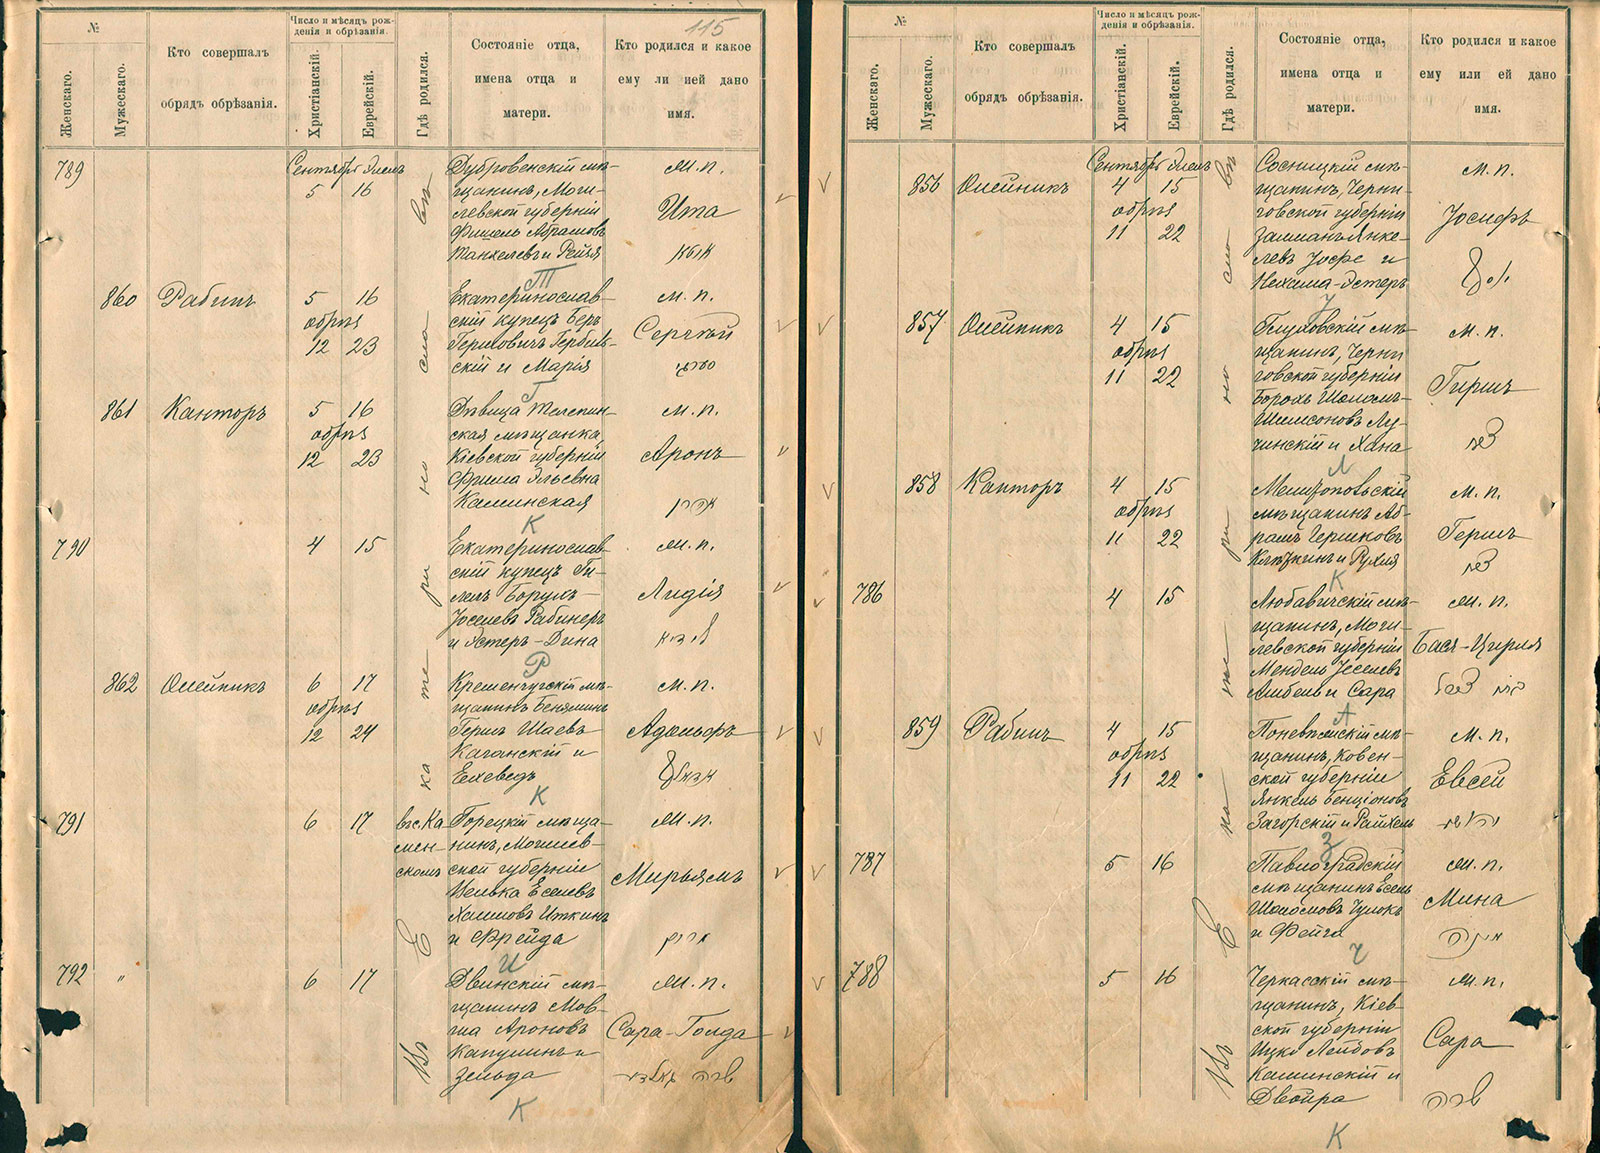 115
№
Женскаго.
Мужескаго.
Кто совершалъ
обрядъ обрѣзанія.
Число и мѣсяцъ рож-
денія и обрѣзанія.
Христіанскій.
Еврейскій.
Гдѣ родился.
Состояніе отца,
имена отца и
матери.
Кто родился и какое
ему ли ией дано
имя.
Въ Екатеринославѣ
789
Сентябрь Элелъ
5 16
Дубровенскій мѣ-
щанинъ, Моги-
левской губерніи
Фишель Абрамовъ
и Рейзя
м. п.
Ита
איטא
Т
860
Рабинъ
5 16
обрѣз
12 23
Екатеринослав-
скій купецъ Беръ
Гершовичъ
скій и Марія
м. п.
Сергѣй
Г
861
Канторъ
5 16
обрѣз
12 23
Дѣвица
ская мѣщанка,
Кіевской губерніи
Фрима Эльевна
Каминская
м. п.
Аронъ
אהרן
К
790
4 15
Екатеринослав-
скій купецъ Ги-
лель Борухъ-
Іоселевъ Рабинеръ
и Эстеръ-Дина
м. п.
Лидія
לידיא
Р
862
Олейникъ
6 17
обрѣз
12 24
Кременчугскій мѣ-
щанинъ Беняминъ
Гершъ Шаевъ
Каганскій и
Ехеведъ
м. п.
Адольфъ
אדאלף
К
791
6 17
въ с. Ка
мен-
скомъ
Горецкій мѣща-
нинъ, Могилев-
ской губерніи
Хаимовъ Иткинъ
и Фрейда
м. п.
Мирьямъ
מרים
И
792
"
6 17
Двинскій мѣ-
щанинъ Мов-
ша Ароновъ
Капулинъ и
Зельда
м. п.
Сара-Голда
שרה גאלדא
К
№
Женскаго.
Мужескаго.
Кто совершалъ
обрядъ обрѣзанія.
Число и мѣсяцъ рож-
денія и обрѣзанія.
Христіанскій.
Еврейскій.
Гдѣ родился.
Состояніе отца,
имена отца и
матери.
Кто родился и какое
ему или ей дано
имя.
856
Олейникъ
Сентябрь Элелъ
4 15
обрѣз
11 22
Сосницкій мѣ-
щанинъ, Черни-
говской губерніи
Залманъ Янке-
левъ Іофе и
Нехама-Эстеръ
м. п.
Іосифъ
יוסף
857
Олейникъ
4 15
обрѣз
11 22
Глуховскій мѣ-
щанинъ, Черни
говской губерніи
Борохъ Шоломъ-
Шимсоновъ Лу-
чинскій и Хана
м. п.
Гиршъ
הירש
Л
858
Канторъ
4 15
обрѣз
11 22
Мелитопольскій
мѣщанинъ Аб-
рамъ Гершковъ
и Рухля
м. п.
Гершъ
הירש
К
786
4 15
Любавичскій мѣ-
щанинъ, Моги-
левской губерніи
Мендель Іоселевъ
и Сара
м. п.
Бася-Цирля
באסע צירל
А
859
Рабинъ
4 15
обрѣз
11 22
Поневѣжскій мѣ-
щанинъ, Ковен-
ской губерніи
Янкель Бенціоновъ
Загорскій и Райхель
м. п.
Евсей
З
787
5 16
Павлоградскій
мѣщанинъ Есель
Шоломовъ
и Фейга
м. п.
Мина
Ч
788
5 16
Черкасскій мѣ-
щанинъ, Кіев-
ской губерніи
Ицко Лейбовъ
Каминскій и
Двойра
м. п.
Сара
שרה
К